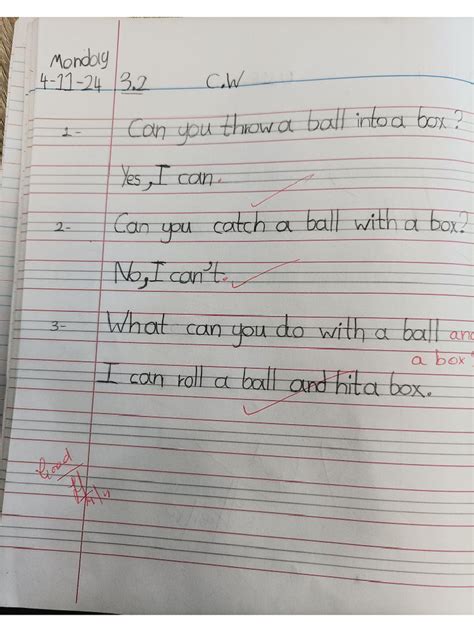 Monday
4-11-24 3.2 C.W
1- Can you throw a ball into a box?
Yes, I can.
2- Can you catch a ball with a box?
No, I can't.
3- What can you do with a ball and
a box?
I can roll a ball and hit a box.
Good